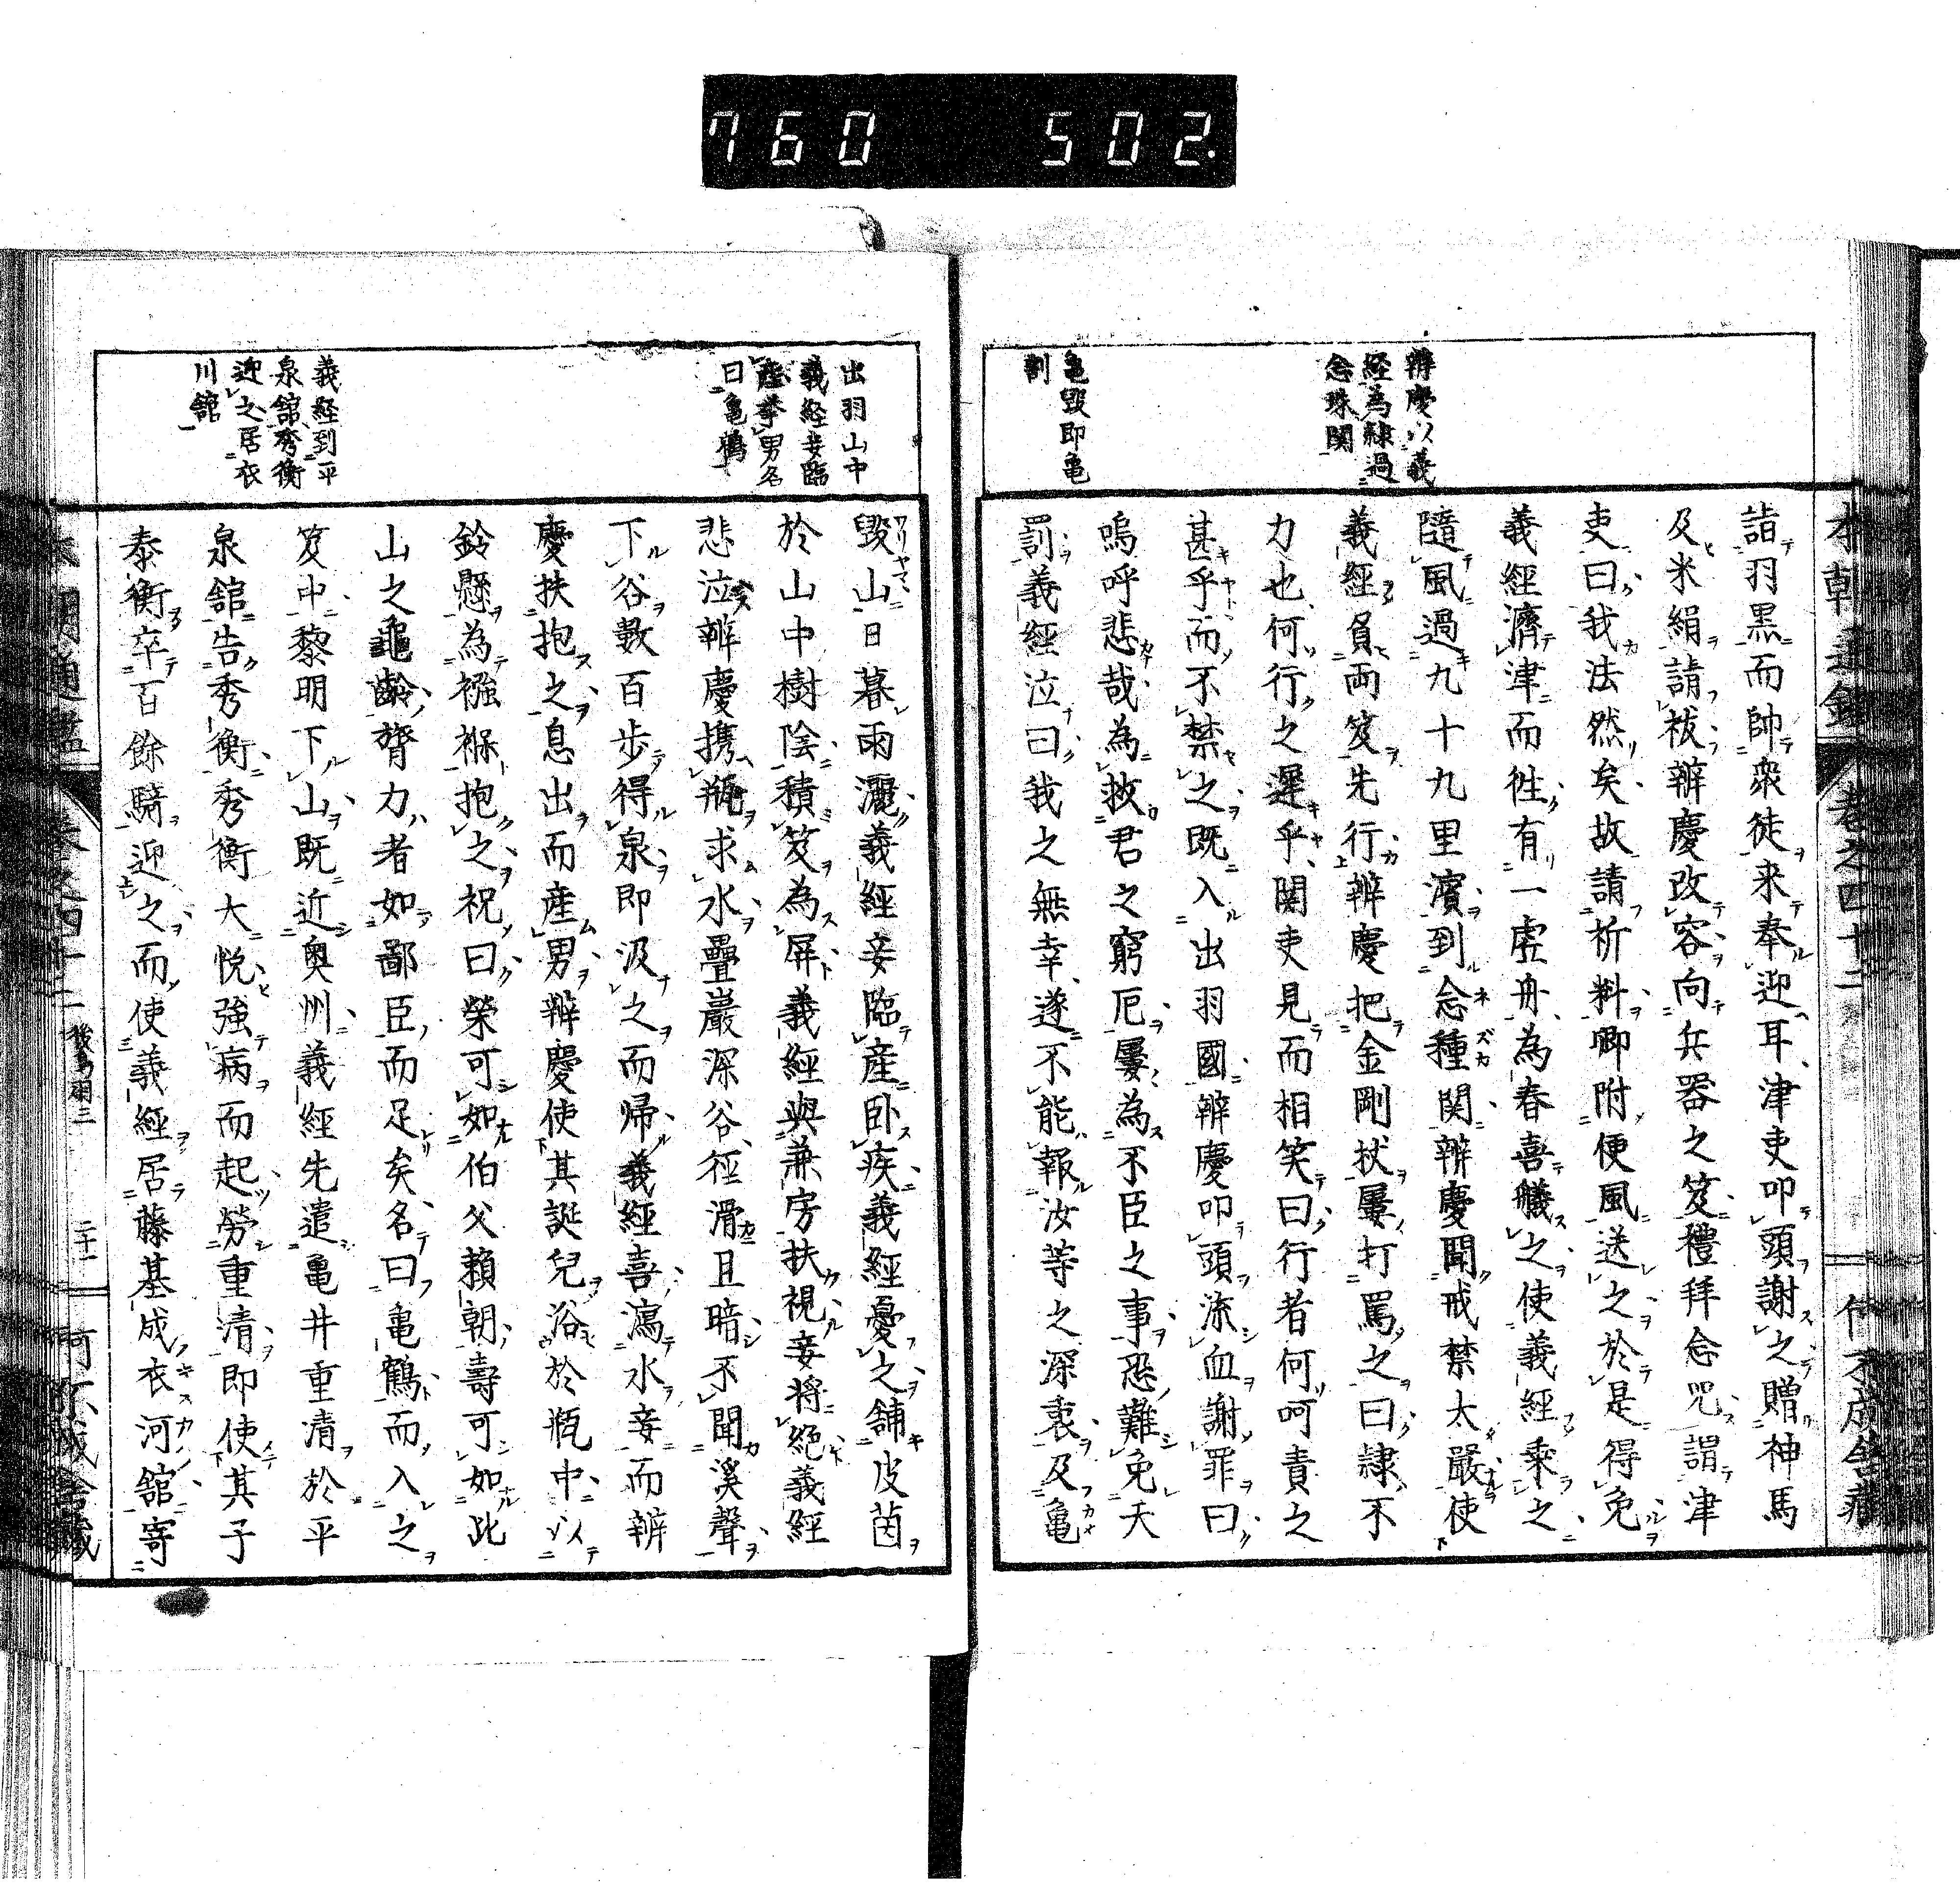 760 502.
本朝通鑑 卷之四十二 何不成舍藏
辨慶以義
経為隷過
念珠関
亀毀即亀
割
詣羽黒而帥衆徒来奉迎耳津吏叩頭謝之贈神馬
及米絹請祓辨慶改容向兵器之笈禮拜念咒謂津
吏曰我法然矣故請祈料卿附便風送之於是得免
義經濟津而徃有一虗舟為春喜艤之使義經乘之
隨風過九十九里濱到念種関辨慶聞戒禁太嚴使
義經負両笈先行辨慶把金剛杖屢打罵之曰隷不
力也何行之遲乎関吏見而相笑曰行者何呵責之
甚乎而不禁之既入出羽國辨慶叩頭流血謝罪曰
嗚呼悲哉為救君之窮厄屢為不臣之事恐難免天
罰義經泣曰我之無幸遂不能報汝等之深衷及亀
出羽山中
義経妾臨
産挙男名
曰亀鶴
義経到平
泉舘秀衡
迎之居衣
川舘
毀山日暮雨灑義經妾臨産卧疾義經憂之舗皮茵
於山中樹陰積笈為屏義經與兼房扶視妾将絕義經
悲泣辨慶携瓶求水疊巖深谷徑滑且暗不聞溪聲
下谷數百步得泉即汲之而帰義經喜瀉水妾而辨
慶扶抱之息出而産男辨慶使其誕兒浴於瓶中以
鈴懸為襁褓抱之祝曰榮可如伯父賴朝壽可如此
山之龜齡膂力者如鄙臣而足矣名曰亀鶴而入之
笈中黎明下山既近奧州義經先遣亀井重清於平
泉舘告秀衡秀衡大悦強病而起勞重清即使其子
泰衡卒百餘騎迎之而使義經居藤基成衣河舘寄
卷之四十二 後鳥羽三 二十一